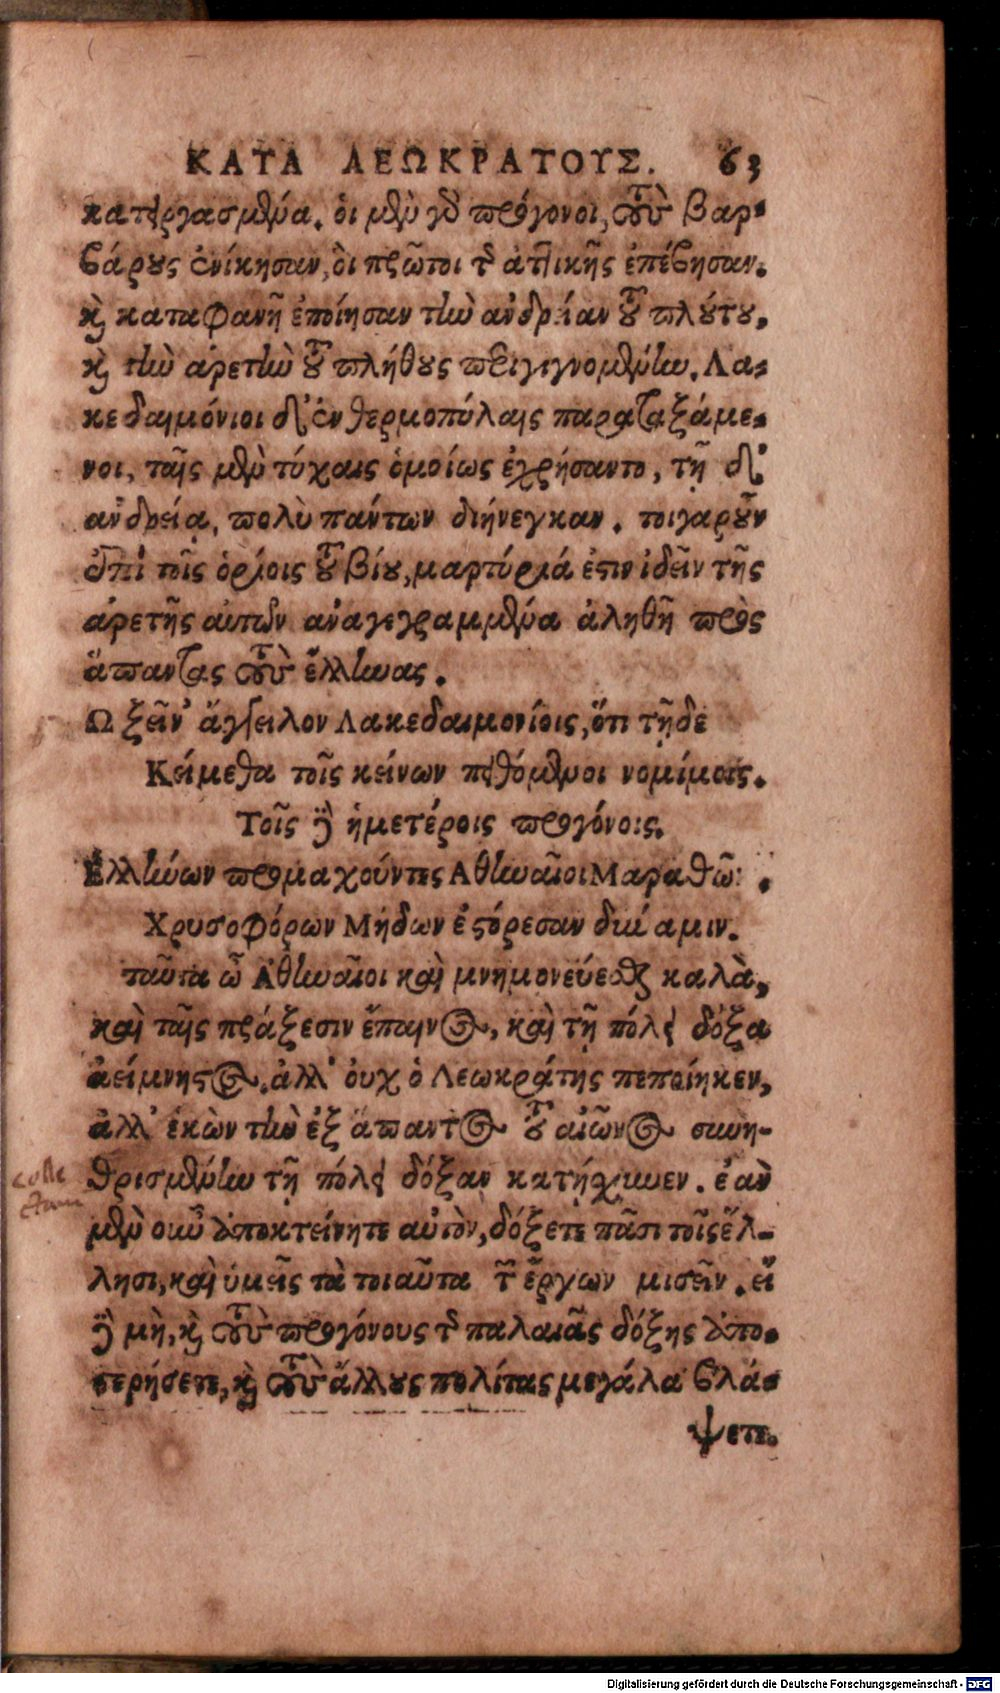 ΚΑΤΑ ΛΕΩΚΡΑΤΟΥΣ. 63
κατειργασμένα. ὁι μὲν γὸ πρόγονοι, τοὺς βαρ-
βάρους ἐνίκησαν, ὃι πρῶτοι τῆς ἀττικῆς ἐπέβησαν.
καὶ καταφανῆ ἐποίησαν τὴν ἀνδρίαν τοῦ πλούτου,
καὶ τὴν ἀρετὴν τοῦ πλήθους περιγιγνομένην. Λα-
κεδαιμόνιοι δ' ἐν θερμοπύλαις παραταξάμε-
νοι, ταῖς μὲν τύχαις ὁμοίως ἐχρήσαντο, τῇ δ'
ἀνδρείᾳ, πολὺ πάντων διήνεγκαν. τοιγαροῦν
ἐπὶ τοῖς ὁρίοις τοῦ βίου, μαρτύριά ἐστιν ἰδεῖν τῆς
ἀρετῆς αὐτῶν ἀναγεγραμμένα ἀληθῆ πρὸς
ἅπαντας τοὺς ἕλληνας.
Ω ξεῖν' ἄγγειλον Λακεδαιμονίοις, ὅτι τῇδε
Κείμεθα τοῖς κείνων πειθόμενοι νομίμοις.
Τοῖς δὲ ἡμετέροις προγόνοις.
Ἑλλήνων προμαχοῦντες Ἀθηναῖοι Μαραθῶνι
Χρυσοφόρων Μήδων ἐστόρεσαν δύναμιν.
ταῦτα ὦ Ἀθηναῖοι καὶ μνημονεύεσθαι καλὰ,
καὶ ταῖς πράξεσιν ἔπαινος, καὶ τῇ πόλει δόξα
ἀείμνηστος. ἀλλ' ουχ ὁ Λεωκράτης πεποίηκεν,
ἀλλ' ἑκὼν τὴν ἐξ ἅπαντος τοῦ αἰῶνος συνη-
θροισμένην τῇ πόλει δόξαν κατῄσχυνεν. ἐὰν
μὲν οὖν ἀποκτείνητε αὐτὸν, δόξετε πᾶσι τοῖς ἕλ-
λησι, καὶ ὑμεῖς τὰ τοιαῦτα τῶν ἔργων μισεῖν. εἰ
δὲ μὴ, καὶ τοὺς προγόνους τῆς παλαιᾶς δόξης ἀπο-
στερήσετε, καὶ τοὺς ἄλλους πολίτας μεγάλα βλά-
ψετε.
Digitalisierung gefördert durch die Deutsche Forschungsgemeinschaft - DFG